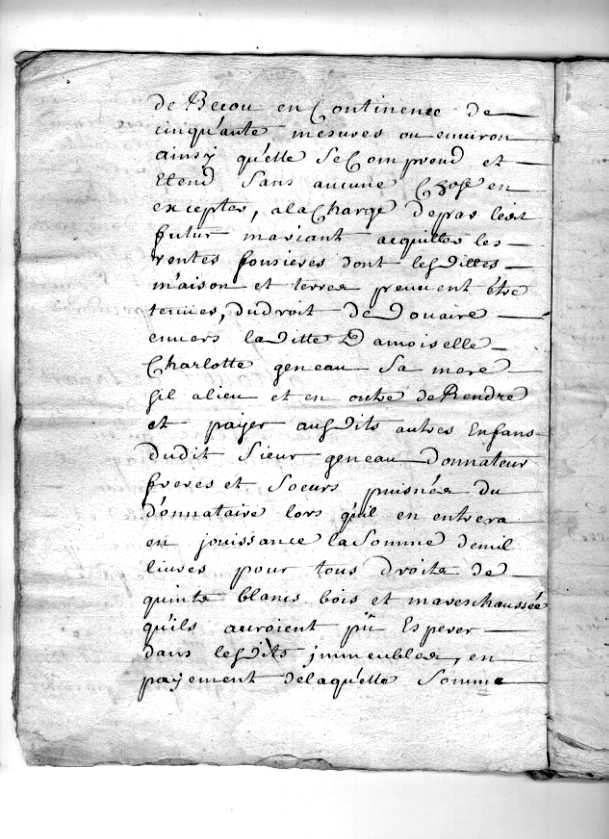 de Becou en Continence de
cinquante mesures ou environ
ainsy qu'elle se Comprend et
Etend sans aucune Chose en
excepter, ala Charge depar ledit
futur mariant acquitter les
rentes fonsieres dont lesdittes
maison et terres peuvent être
tenües, du droit de Doüaire
envers laditte Damoiselle
Charlotte geneau sa mere
sil alieu et en outre de Rendre
et payer ausdits autres Enfans
dudit Sieur geneau Donnateur
freres et Soeurs puisnés du
donnataire lors qu'il en entrera
en jouissance la Somme demil
livres pour tous droits de
quints blancs bois et marechaussée
qu'ils auroient pü Esperer
dans lesdits immeubles, en
payement delaquelle Somme